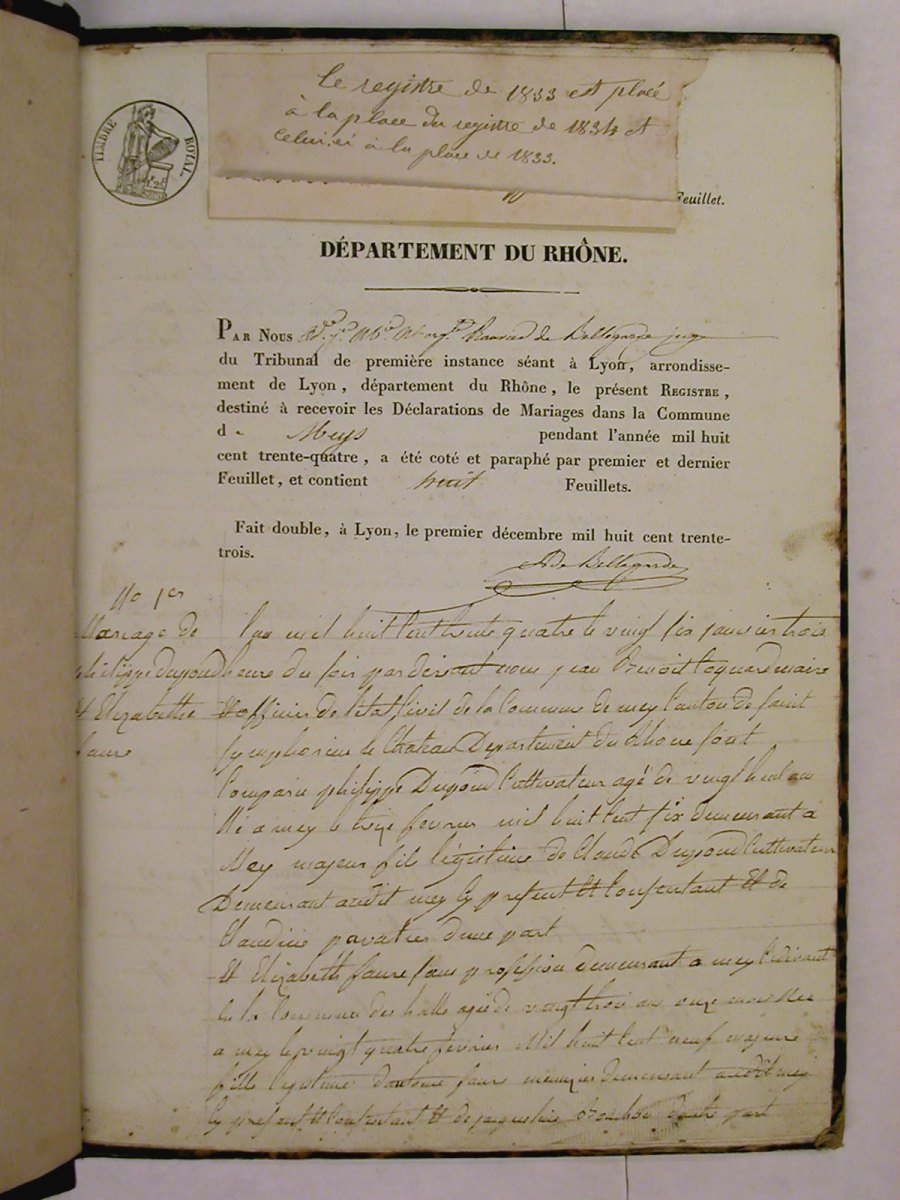 Le registre de 1833 est placé
à la place du registre de 1834 et
celui-ci à la place de 1833.
TIMBRE ROYAL.
Feuillet.
DÉPARTEMENT DU RHÔNE.
PAR NOUS de Bellegarde juge
du Tribunal de première instance séant à Lyon, arrondisse-
ment de Lyon, département du Rhône, le présent REGISTRE,
destiné à recevoir les Déclarations de Mariages dans la Commune
d e Meys pendant l'année mil huit
cent trente-quatre, a été coté et paraphé par premier et dernier
Feuillet, et contient huit Feuillets.
Fait double, à Lyon, le premier décembre mil huit cent trente-
trois.
De Bellegarde
No 1er
Mariage de
philippe Dujoud
et Elizabethe
faure
lan mil huit cent trente quatre le vingt six janvier trois
heure du soir par devant nous jean Benoit Coquard maire
et officier de letat Civil de la Commune de mey Canton de saint
symphorien le Chateau Departement du Rhone sont
Comparu philippe Dujoud Cultivateur agé de vingt huit an
Né a mey le treze fevrier mil huit cent six demeurant a
Mey majeur fils légistime de Claude Dujoud Cultivateur
Demeurant audit mey Cy present et Consentant et de
Claudine pavatier dune part
et Elizabeth faure sans profession demeurant a mey Cidevant
en la Commune des halle agée de vingt trois an onze mois Née
a mey le vingt quatre fevrier mil huit cent neuf majeure
fille legistime dantoine faure menuzier demeurant audit mey
Cy present et Consentant et de jacqueline dautre part